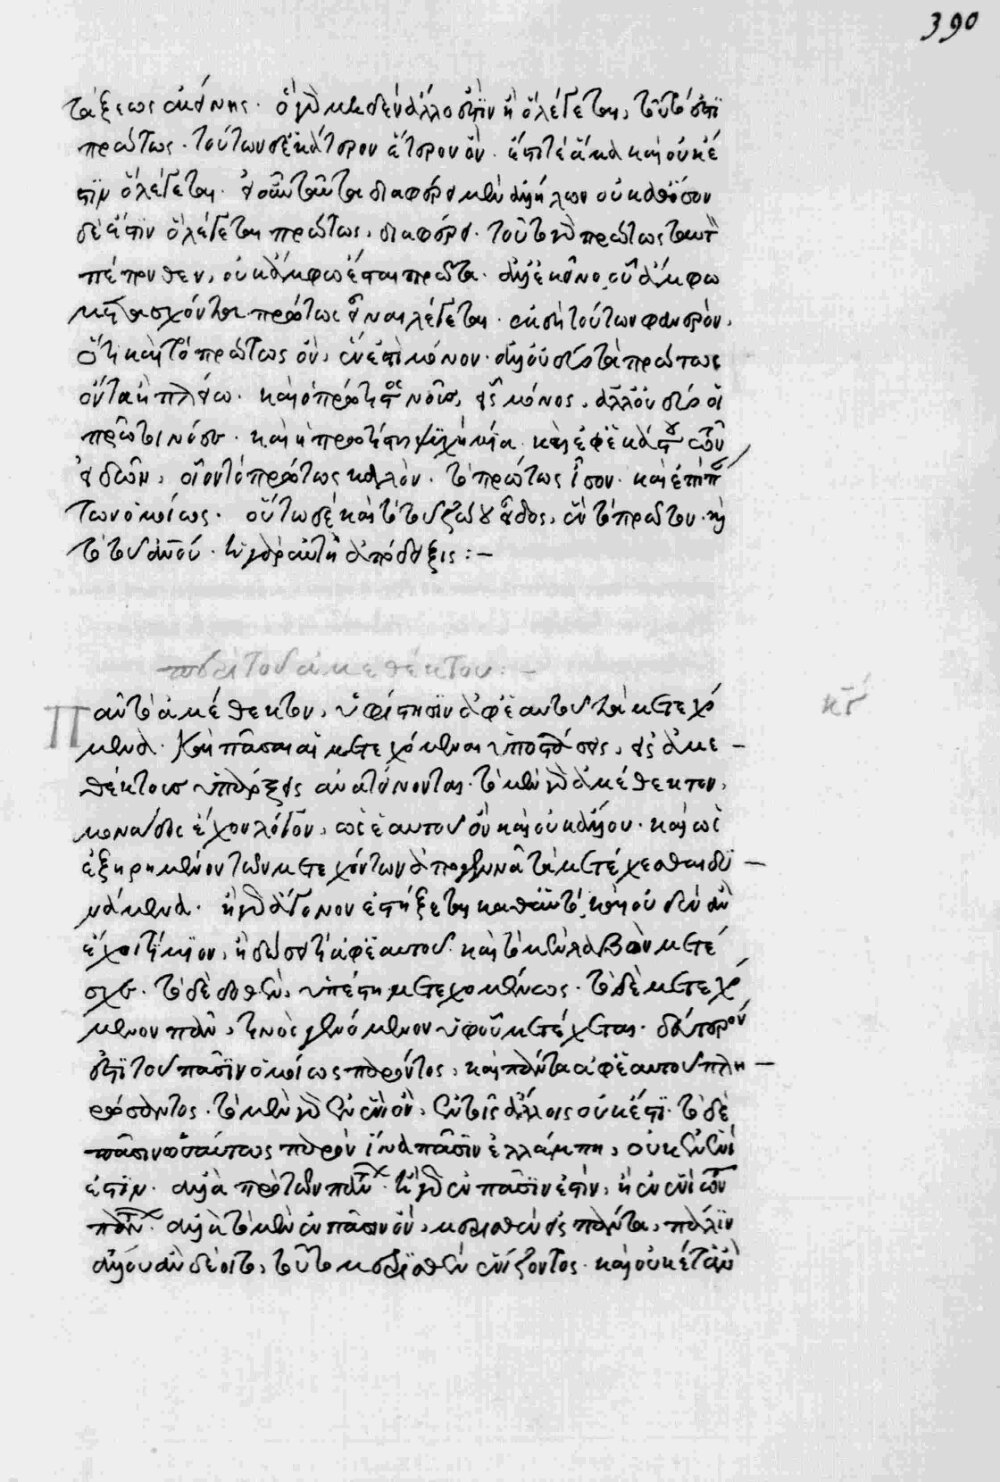 390
τάξεως ἐκείνης. ὃ γὰρ μηδὲν ἄλλο ἐστὶν ἢ ὃ λέγεται, τοῦτό ἐστι
πρώτως. τούτων δὲ ἑκάτερον ἕτερον ὂν. ἔστι τὲ ἅμα καὶ οὐκ ἔ
στιν ὃ λέγεται. εἰ οὖν ταῦτα διαφέρει μὲν ἀλλήλων οὐ καθόσον
δέ ἐστιν ὃ λέγεται πρώτως, διαφέρει. τοῦτο γὰρ πρώτως ταυτὸ
πέπονθεν, οὐκ ἄμφω ἔσται πρῶτα. ἀλλ' ἐκεῖνο οὗ ἄμφω
μετασχόντα πρώτως εἶναι λέγεται. ἐκ δὴ τούτων φανερὸν,
ὅτι καὶ τὸ πρώτως ὂν, ἕν ἐστι μόνον. ἀλλ' οὐ δύο τὰ πρώτως
ὄντα ἢ πλείω. καὶ ὁ πρώτιστος νοῦς, εἷς μόνος, ἀλλ' οὐ δύο οἱ
πρῶτοι νόες. καὶ ἡ πρωτίστη ψυχὴ μία. καὶ ἐφ' ἑκάστου τῶν
εἰδῶν, οἷον τὸ πρώτως καλὸν. τὸ πρώτως ἴσον. καὶ ἐπὶ πάν
των ὁμοίως. οὕτω δὲ καὶ τὸ τοῦ ζώου εἶδος, ἓν τὸ πρῶτον. καὶ
τὸ τοῦ ἀνθρώπου. ἡ γὰρ αὐτὴ ἀπόδειξις :–
περὶ τοῦ ἀμεθέκτου :–
Πᾶν τὸ ἀμέθεκτον, ὑφίστησιν ἀφ' ἑαυτοῦ τὰ μετεχό
μενα. καὶ πᾶσαι αἱ μετεχόμεναι ὑποστάσεις, εἰς ἀμε–
θέκτους ὑπάρξεις ἀνατείνονται. τὸ μὲν γὰρ ἀμέθεκτον,
μονάδος ἔχον λόγον, ὡς ἑαυτοῦ ὂν καὶ οὐκ ἄλλου. καὶ ὡς
ἐξῃρημένον τῶν μετεχόντων ἀπογεννᾶ τὰ μετέχεσθαι δυ–
νάμενα. ἢ γὰρ ἄγονον ἑστήξεται καθ' αὑτό, καὶ οὐδὲν ἂν
ἔχοι τίμιον, ἢ δώσει τι ἀφ' ἑαυτοῦ. καὶ τὸ μὲν λαβὸν μετέ
σχε. τὸ δὲ δοθὲν, ὑπέστη μετεχομένως. τὸ δὲ μετεχό
μενον πᾶν, τινὸς γενόμενον ὑφ' οὗ μετέχεται. δεύτερόν
ἐστι τοῦ πᾶσιν ὁμοίως παρόντος, καὶ πάντα ἀφ' ἑαυτοῦ πλη–
ρώσαντος. τὸ μὲν γὰρ ἐν ἑνὶ ὂν, ἐν τοῖς ἄλλοις οὐκ ἔστι. τὸ δὲ
πᾶσιν ὡσαύτως παρὸν ἵνα πᾶσιν ἐλλάμπη, οὐκ ἐν ἑνί
ἐστιν. ἀλλὰ πρὸ τῶν πάντων. ἢ γὰρ ἐν πᾶσιν ἐστὶν, ἢ ἐν ἑνὶ τῶν
πάντων. ἀλλὰ τὸ μὲν ἐν πᾶσιν ὂν, μερισθὲν εἰς πάντα, πάλιν
ἄλλου ἂν δέοιτο, τοῦ τὸ μερισθὲν ἑνίζοντος. καὶ οὐκέτ' ἂν
κγ